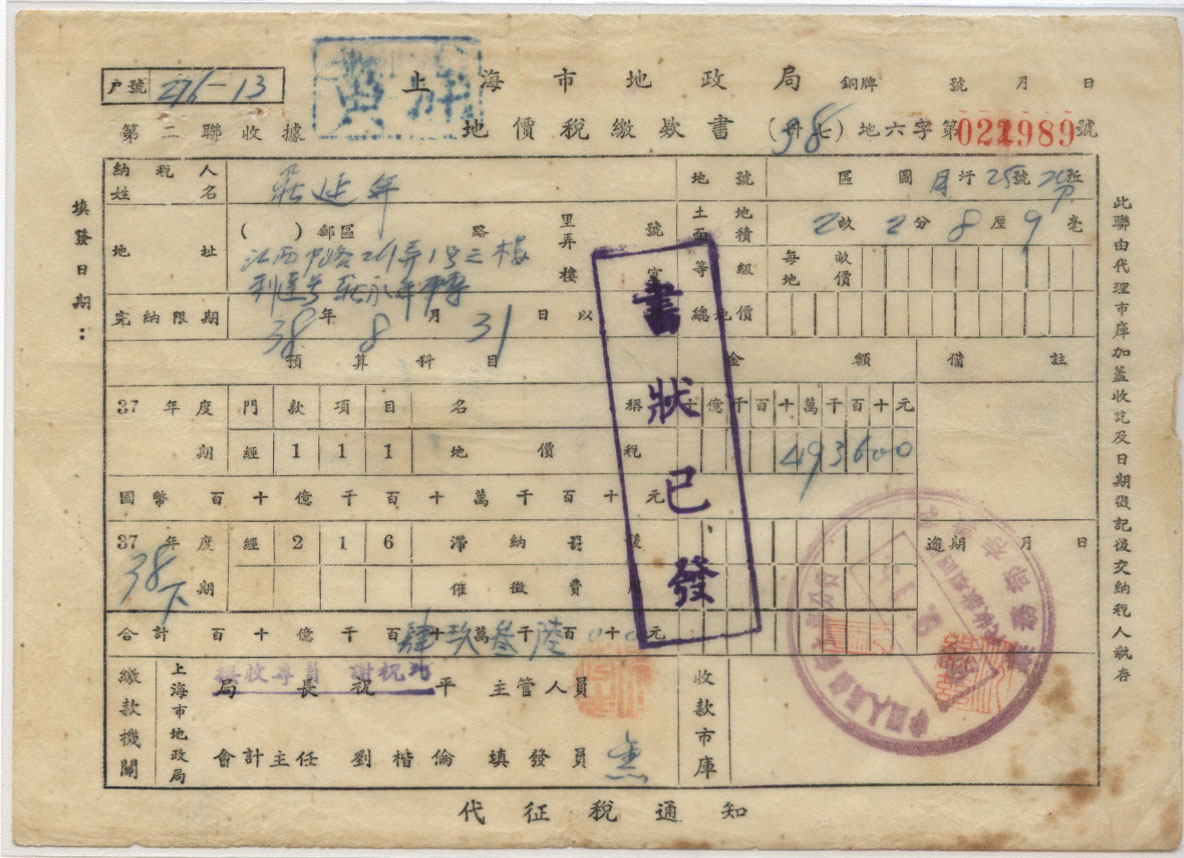 戶號 276-13
上海市地政局 銅牌 號 月 日
第二聯收據 地價稅繳款書 (卅七) 38 地六字第021989號
填發日期：
納稅人姓名 莊延年 地號 區 圖 圩 25號 坵
地址 ( )郵區 路 里弄 號 樓 室 土地面積 2畝2分8厘9毫
江西中路 弄1号三樓
等級 每畝地價
完納限期 38年8月31日以 總地價
預算科目 金額 備註
37年度 期 門 款 項 目 名稱 十億千百十萬千百十元
經 1 1 1 地價稅 493600
國幣 百十億千百十萬千百十元
37年度 期 38下 經 2 1 6 滯納罰 逾期 月 日
催徵費
合計 百十億千百十萬千百十元 肆玖叁陸00
書狀已發
繳款機關 上海市地政局 局長祝平 主管人員 收款市庫
接收專員
會計主任 劉楷倫 填發員
中國人民銀行
代征稅通知
此聯由代理市庫加蓋收訖及日期戳記後交納稅人執存